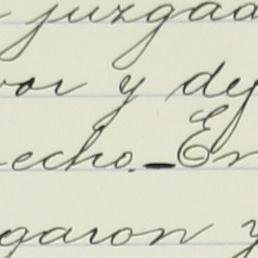 juzgad
or y de
echo. - En
garon y